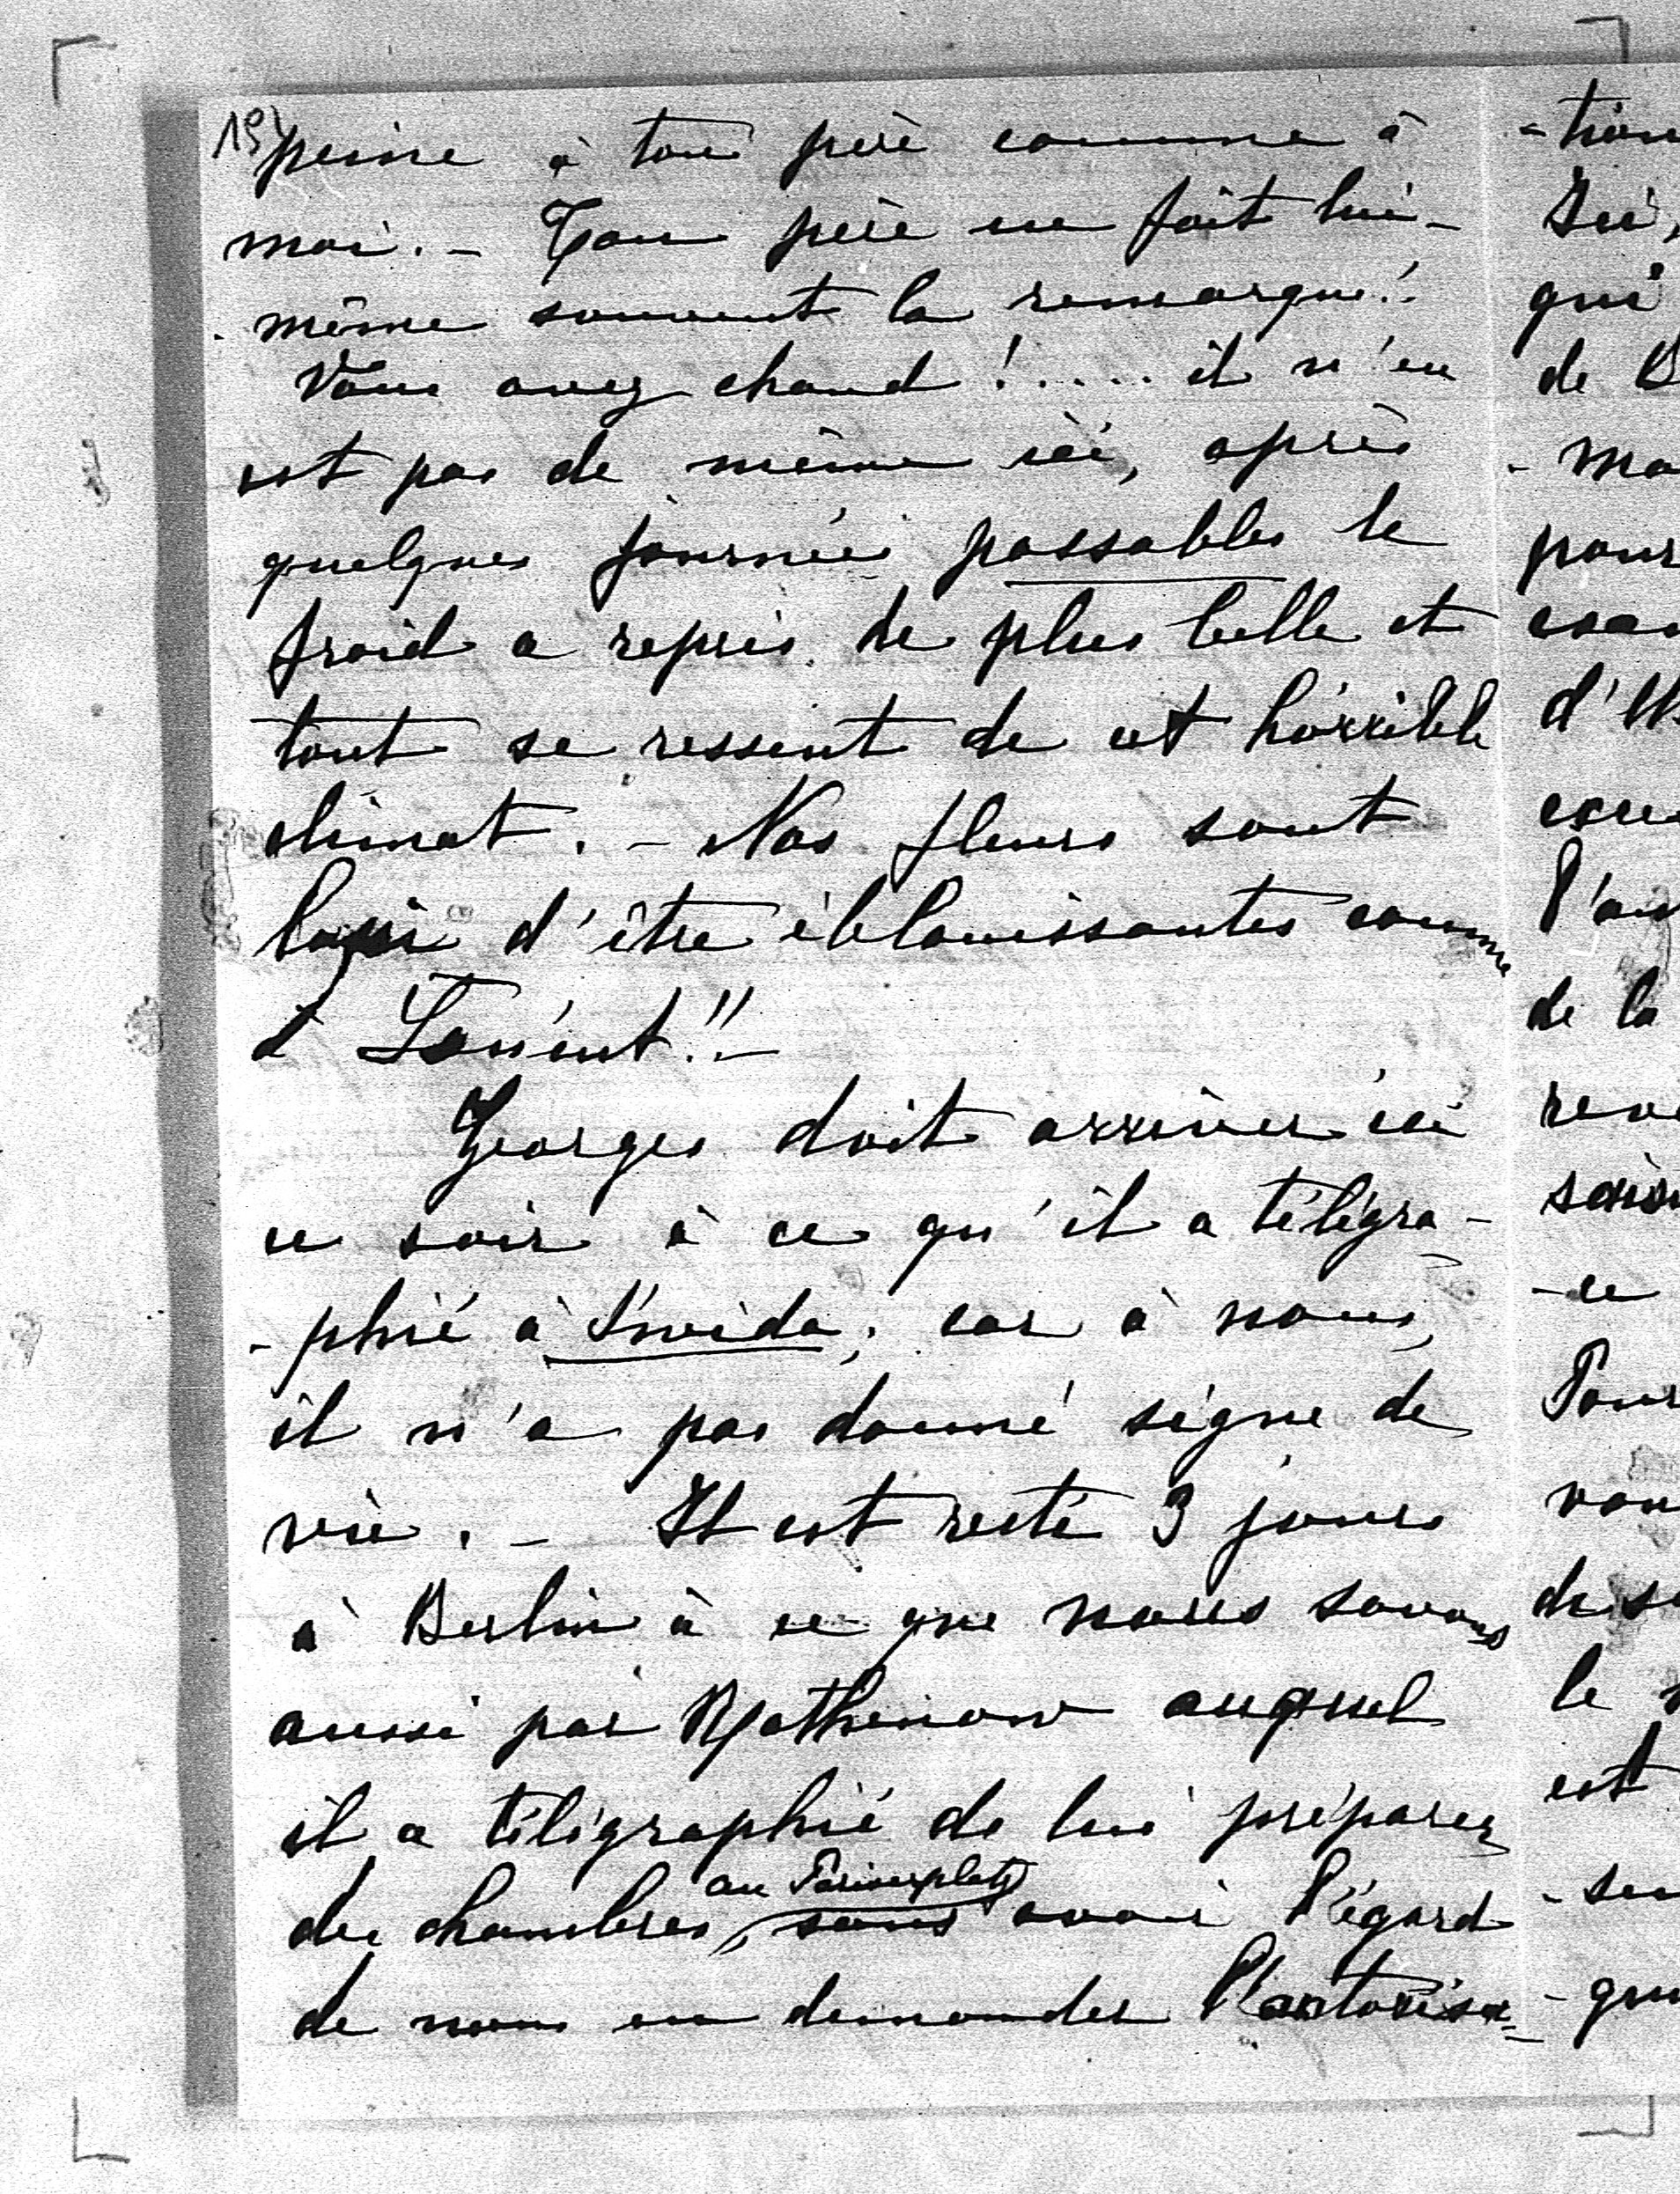 peine à ton père comme à
moi. - Ton père en fait lui-
même souvent la remarque!
Vous avez chaud !..... il n'en
est pas de même ici, après
quelques journées passables le
froid a repris de plus belle et
tout se ressent de cet horrible
climat. - Nos fleurs sont
loin d'être éblouissantes comme
à !! -
Georges doit arriver ici
ce soir à ce qu'il a télégra-
-phié à ; car à nous,
il n'a pas donné signe de
vie. - Il est resté 3 jours
à Berlin à ce que nous savons
aussi par auquel
il a télégraphié de lui préparer
au Pariserplatz
des chambres, sans avoir l'égard
de nous en demander l'autorisa-
-tion
qui
de
pour
de la
-ce
le
est